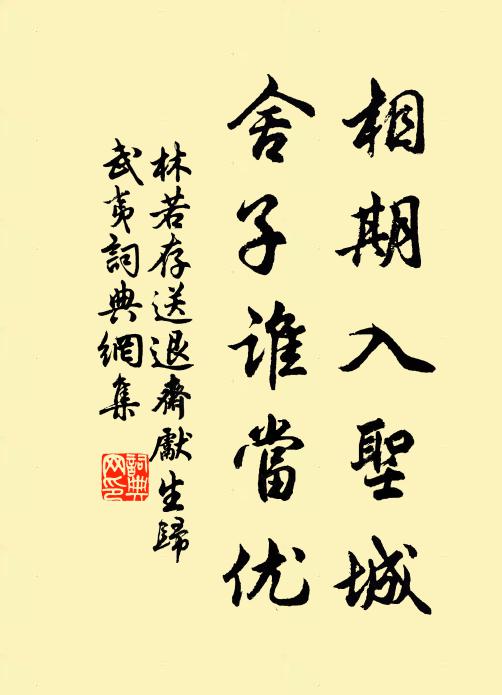 相期入聖城
舍子誰當优
林若存送退齋獻生歸
武夷詞典網集
詞典网印